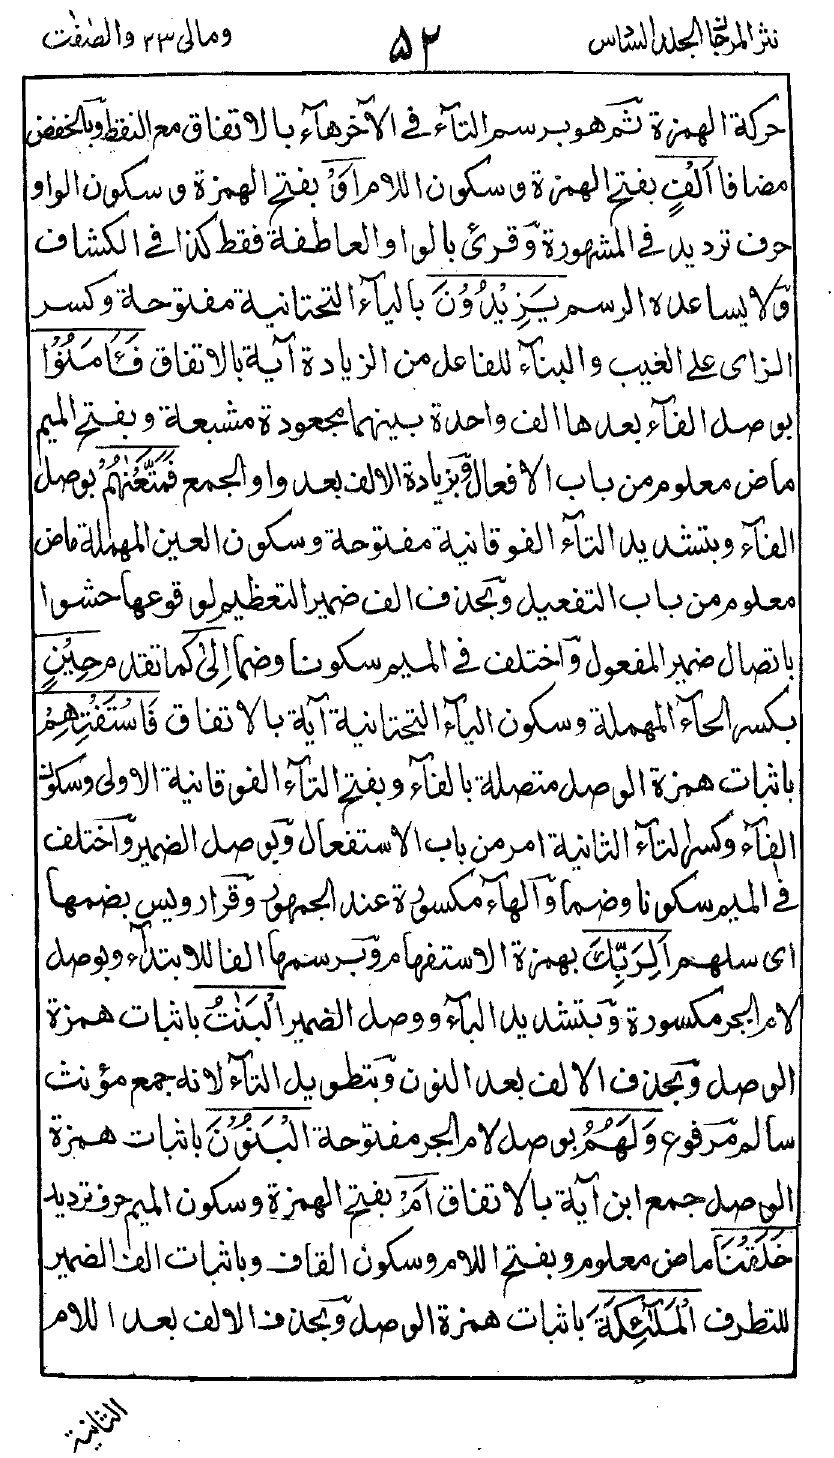 نثر المرجان الجلد السادس ۵۲ ومالى ۲۳ والصٰفٰت
حركة الهمزة ثم هو برسم التآء فى الآخر هآء بالاتفاق مع النقط وبالخفض
مضافا اَلْفٍ بفتح الهمزة وسكون اللام اَوْ بفتح الهمزة وسكون الواو
حرف ترديد فى المشهورة وقرئ بالواو العاطفة فقط كذا فى الكشاف
ولا يساعده الرسم يَزِيْدُوْنَ بالياء التحتانية مفتوحة وكسر
الزاى على الغيب والبنآء للفاعل من الزيادة آية بالاتفاق فَـَٔامَنُوْا
بوصل الفآء بعدها الف واحدة بينهما مجعودة مشبعة وبفتح الميم
ماض معلوم من باب الافعال وبزيادة الالف بعد واو الجمع فَمَتَّعْنٰهُمْ بوصل
الفآء وبتشديد التآء الفوقانية مفتوحة وسكون العين المهملة ماض
معلوم من باب التفعيل وبحذف الف ضمير التعظيم لوقوعها حشوا
باتصال ضمير المفعول واختلف فى الميم سكونا وضما اِلٰى كما تقدم حِيْنٍ
بكسر الحآء المهملة وسكون اليآء التحتانية آية بالاتفاق فَاسْتَفْتِهِمْ
باثبات همزة الوصل متصلة بالفآء وبفتح التآء الفوقانية الاولى وسكون
الفآء وكسر التآء الثانية امر من باب الاستفعال وبوصل الضمير واختلف
فى الميم سكونا وضما والهآء مكسورة عند الجمهور وقرا رويس بضمها
اى سلهم اَلِرَبِّكَ بهمزة الاستفهام وبرسمها الفا للابتدآء وبوصل
لام الجر مكسورة وبتشديد البآء ووصل الضمير الْبَنٰتُ باثبات همزة
الوصل وبحذف الالف بعد النون وبتطويل التآء لانه جمع مؤنث
سالم مرفوع وَلَهُمُ بوصل لام الجر مفتوحة الْبَنُوْنَ باثبات همزة
الوصل جمع ابن آية بالاتفاق اَمْ بفتح الهمزة وسكون الميم حرف ترديد
خَلَقْنَا ماض معلوم وبفتح اللام وسكون القاف وباثبات الف الضمير
للتطرف الْمَلٰٓئِكَةَ باثبات همزة الوصل وبحذف الالف بعد اللام
الثانية